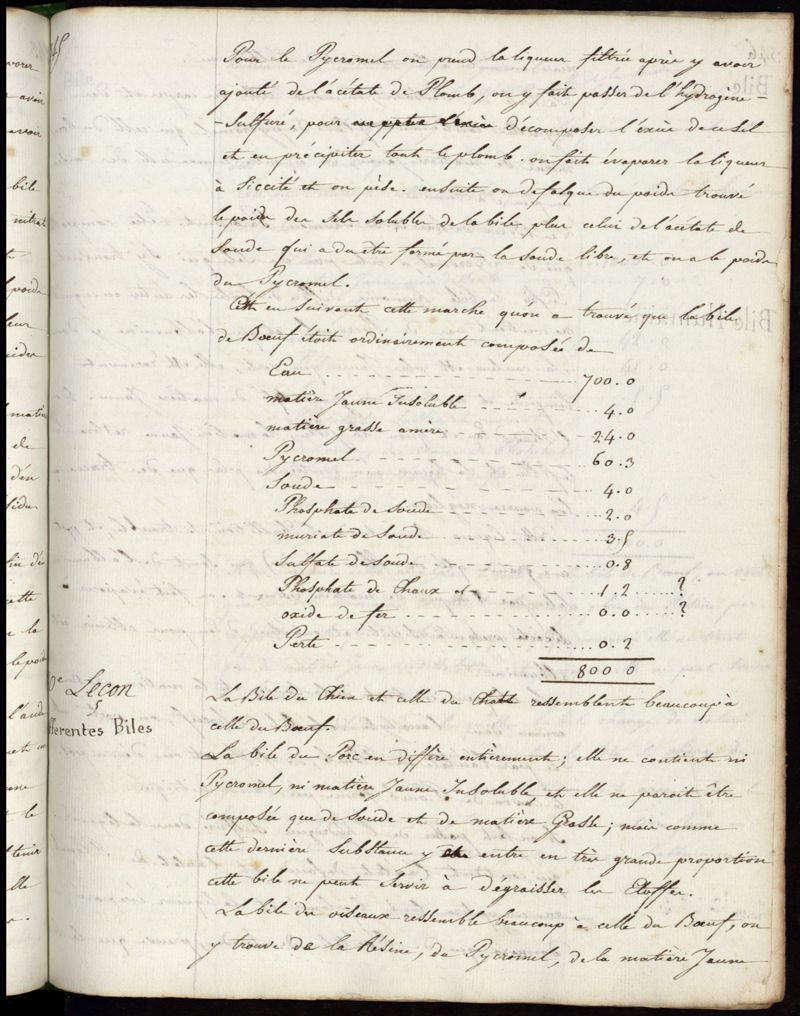 Pour le Pycromel on prend la liqueur filtrée après y avoir
ajouté de l'acétate de Plomb, on y fait passer de l'hydrogène-
-Sulfuré, pour décomposer l'excès de ce sel
et en précipiter tout le plomb. on fait évaporer la liqueur
à Siccité et on pèse. ensuite on defalque du poids trouvé
le poids des sels solubles de la bile plus celui de l'acétate de
Soude qui a du être formé par la soude libre, et on a le poids
du Pycromel.
C'est en Suivant cette marche qu'on a trouvé que la bile
de Bœuf étoit ordinairement composée de
Eau 700.0
matière Jaune Insoluble 4.0
matière grasse amère 24.0
Pycromel 60.3
Soude 4.0
Phosphate de Soude 2.0
muriate de Soude 3.5
Sulfate de Soude 0.8
Phosphate de Chaux et 1.2 ?
oxide de fer 0.0 ?
Perte 0.2
800 0
e Leçon
§
fferentes Biles
La Bile du Chien et celle du Chat ressemblent beaucoup à
celle du Bœuf.
La bile du Porc en diffère entièrement; elle ne contient ni
Pycromel, ni matière Jaune Insoluble, et elle ne paroit être
composée que de Soude et de matière Grasse; mais comme
cette derniere Substance y entre en très grande proportion
cette bile ne peut Servir à dégraisser les Etoffes.
La bile des oiseaux ressemble beaucoup à celle du Bœuf, on
y trouve de la Résine, du Pycromel, de la matière Jaune